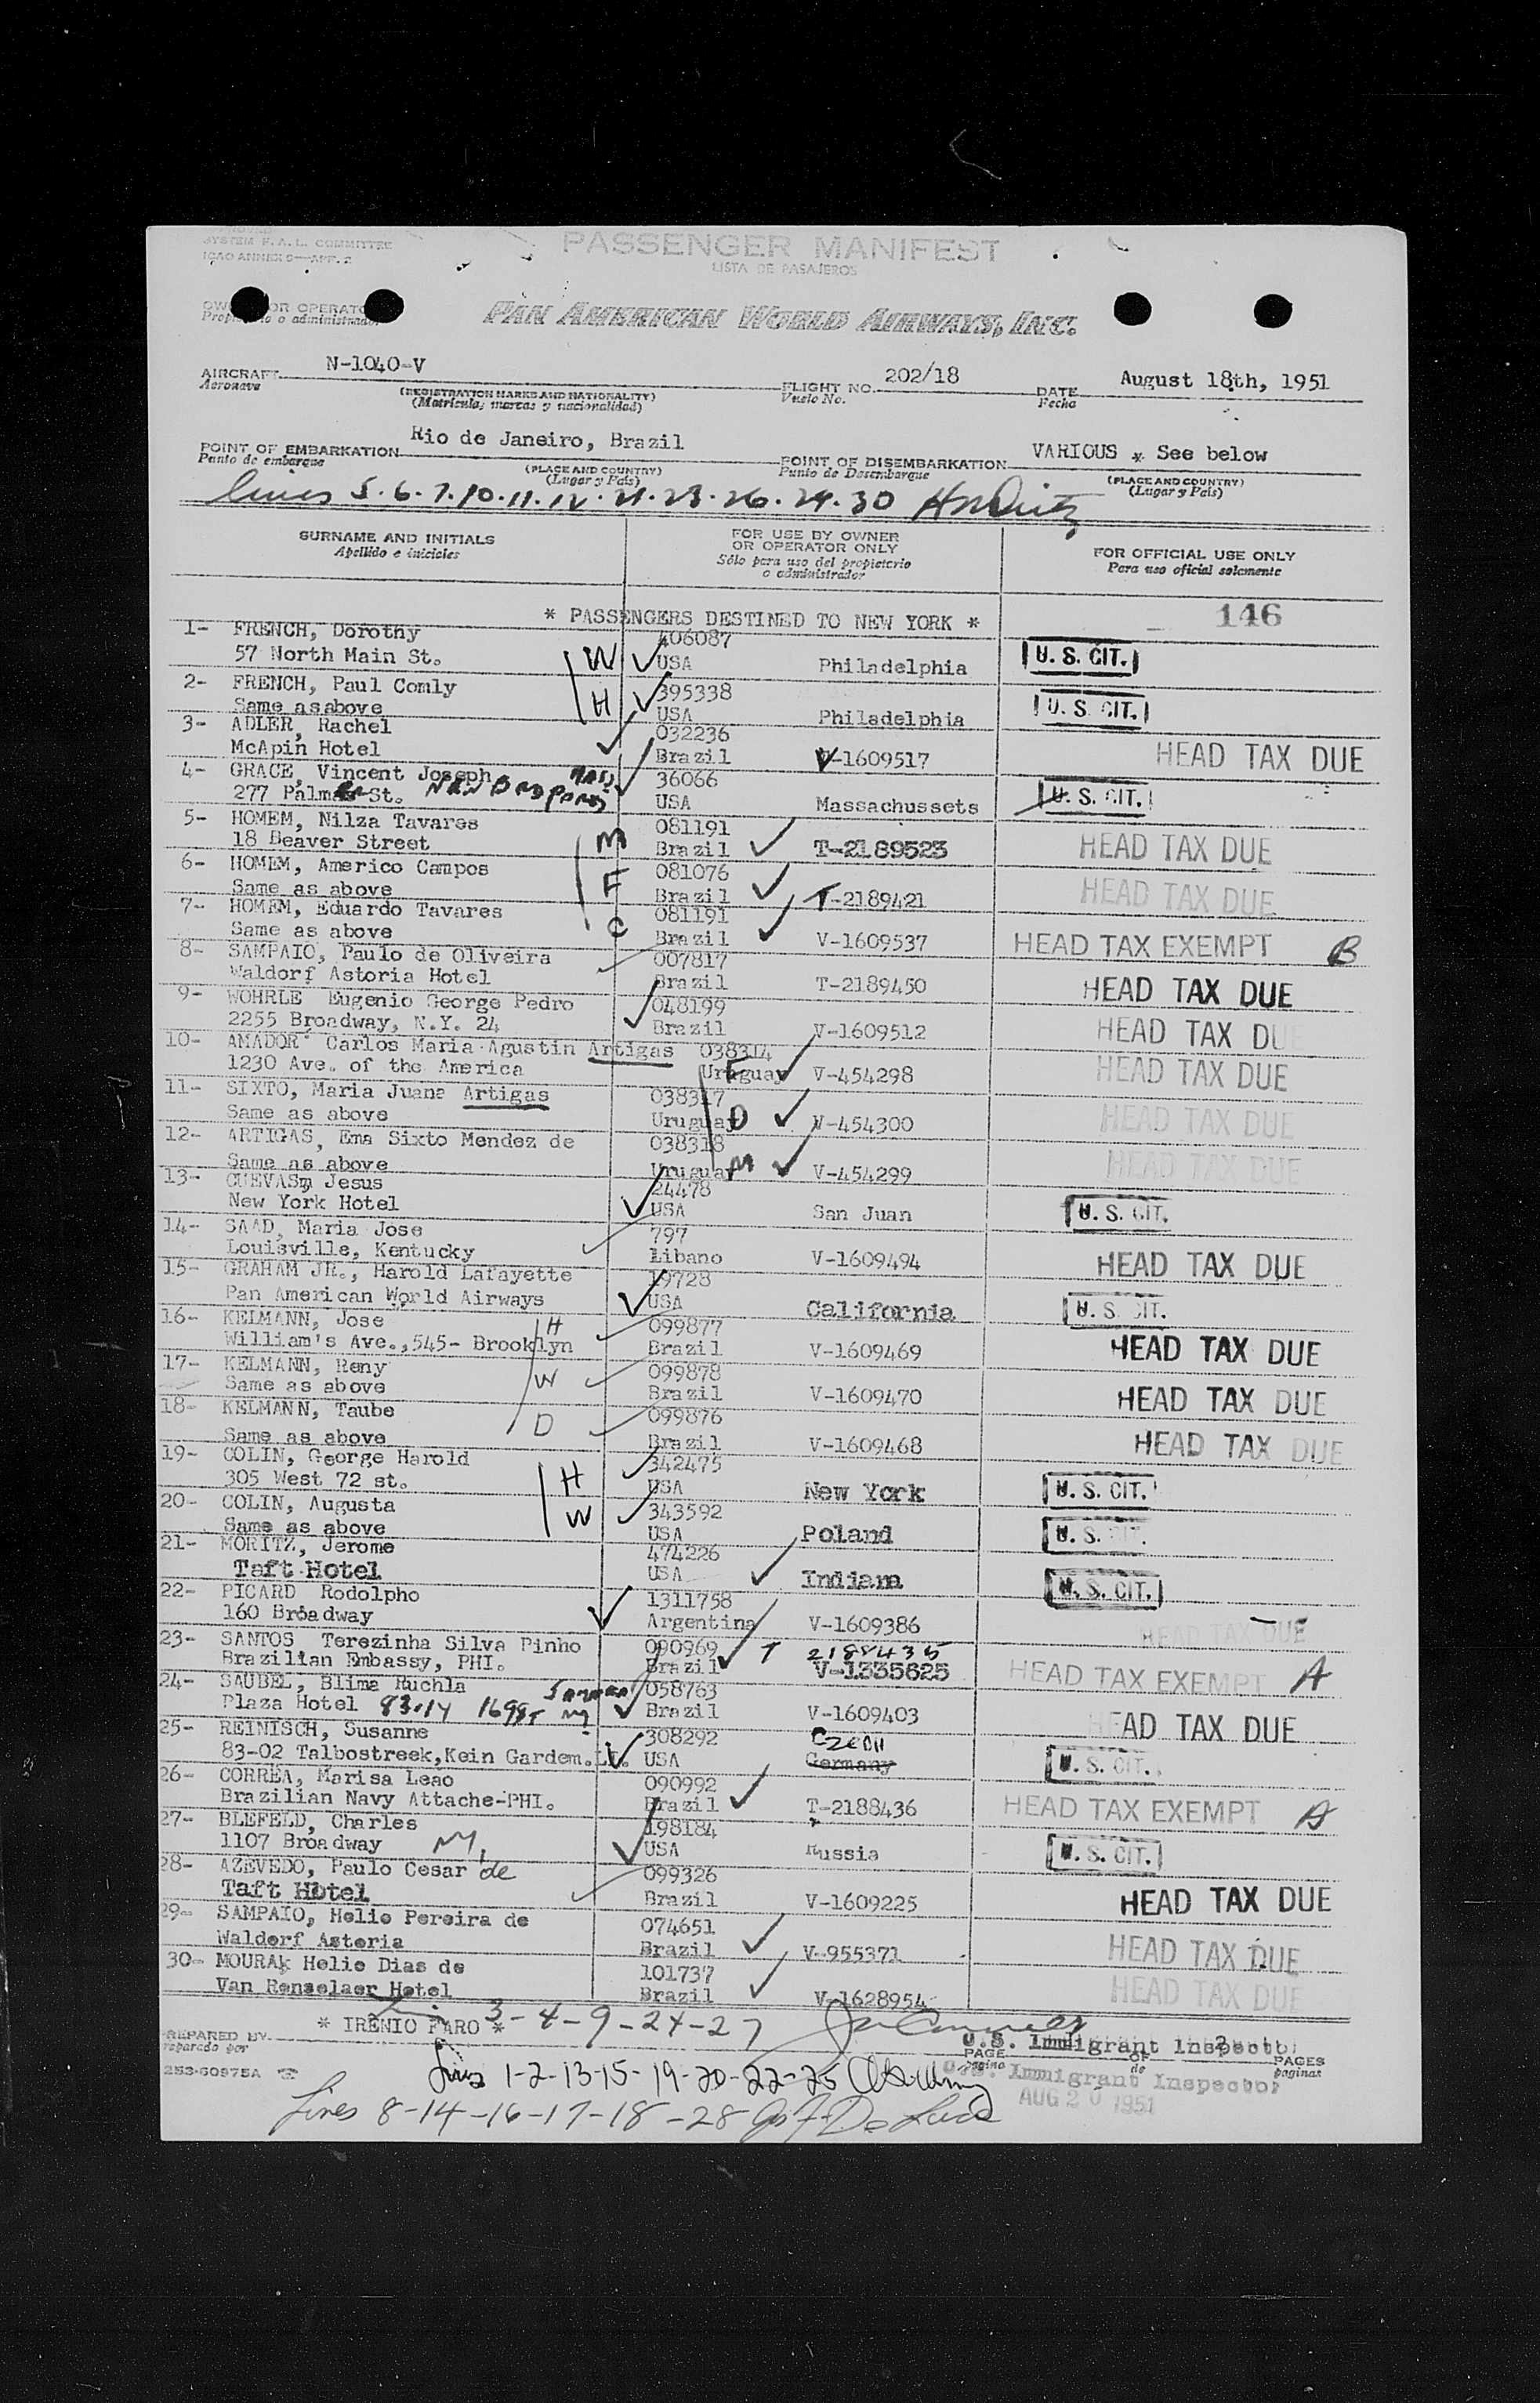 SYSTEM F.A.L. COMMITTEE
ICAO ANNEX 9—APP. 2
PASSENGER MANIFEST
LISTA DE PASAJEROS
OWNER OR OPERATOR
Propietario o administrador
PAN AMERICAN WORLD AIRWAYS, INC.
AIRCRAFT N-1040-V FLIGHT NO. 202/18 DATE August 18th, 1951
Aeronave (REGISTRATION MARKS AND NATIONALITY) Vuelo No. Fecha
(Matricula, marcas y nacionalidad)
POINT OF EMBARKATION Rio de Janeiro, Brazil POINT OF DISEMBARKATION VARIOUS * See below
Punto de embarque (PLACE AND COUNTRY) Punto de Desembarque (PLACE AND COUNTRY)
(Lugar y Pais) (Lugar y Pais)
Lines 5. 6. 7. 10. 11. 12. 21. 23. 26. 29. 30
SURNAME AND INITIALS FOR USE BY OWNER OR OPERATOR ONLY FOR OFFICIAL USE ONLY
Apellido e iniciales Sólo para uso del propietario o administrador Para uso oficial solamente
* PASSENGERS DESTINED TO NEW YORK * 146
1- FRENCH, Dorothy 406087
57 North Main St. W USA Philadelphia U. S. CIT.
2- FRENCH, Paul Comly 395338
Same as above H USA Philadelphia U. S. CIT.
3- ADLER, Rachel 032236
McApin Hotel Brazil V-1609517 HEAD TAX DUE
4- GRACE, Vincent Joseph 36066
277 Palmer St. NEW BEDFORD MASS USA Massachussets U. S. CIT.
5- HOMEM, Nilza Tavares 081191
18 Beaver Street M Brazil T-2189523 HEAD TAX DUE
6- HOMEM, Americo Campos 081076
Same as above F Brazil T-2189421 HEAD TAX DUE
7- HOMEM, Eduardo Tavares 081191
Same as above C Brazil V-1609537 HEAD TAX EXEMPT B
8- SAMPAIO, Paulo de Oliveira 007817
Waldorf Astoria Hotel Brazil T-2189450 HEAD TAX DUE
9- WOHRLE Eugenio George Pedro 048199
2255 Broadway, N.Y. 24 Brazil V-1609512 HEAD TAX DU
10- AMADOR Carlos Maria Agustin Artigas 038314
1230 Ave. of the America F Uruguay V-454298 HEAD TAX DUE
11- SIXTO, Maria Juana Artigas 038317
Same as above D Uruguay V-454300 HEAD TAX DUE
12- ARTIGAS, Ema Sixto Mendez de 038318
Same as above M Uruguay V-454299 HEAD TAX DUE
13- CUEVASm Jesus 24478
New York Hotel USA San Juan U. S. CIT.
14- SAAD, Maria Jose 797
Louisville, Kentucky Libano V-1609494 HEAD TAX DUE
15- GRAHAM JR., Harold Lafayette 19728
Pan American World Airways USA California U. S. CIT.
16- KELMANN, Jose H 099877
William's Ave.,545- Brooklyn Brazil V-1609469 HEAD TAX DUE
17- KELMANN, Reny 099878
Same as above W Brazil V-1609470 HEAD TAX DUE
18- KELMANN, Taube 099876
Same as above D Brazil V-1609468 HEAD TAX DUE
19- COLIN, George Harold 342475
305 West 72 st. H USA New York U. S. CIT.
20- COLIN, Augusta 343592
Same as above W USA Poland U. S.
21- MORITZ, Jerome 474226
Taft Hotel USA Indiana U. S. CIT.
22- PICARD Rodolpho 1311758
160 Broadway Argentina V-1609386 HEAD TAX DUE
23- SANTOS Terezinha Silva Pinho 090969 T 2188435
Brazilian Embassy, PHI. Brazil V-1335625 HEAD TAX EXEMPT A
24- SAUBEL, Blima Ruchla 058763
Plaza Hotel 83-14 169 St Jamaica NY Brazil V-1609403 HEAD TAX DUE
25- REINISCH, Susanne 308292 CZECH
83-02 Talbostreek,Kein Gardem.LI. USA Germany U. S. CIT.
26- CORREA, Marisa Leao 090992
Brazilian Navy Attache-PHI. Brazil T-2188436 HEAD TAX EXEMPT A
27- BLEFELD, Charles 198184
1107 Broadway NY. USA Russia U. S. CIT.
28- AZEVEDO, Paulo Cesar de 099326
Taft Hotel Brazil V-1609225 HEAD TAX DUE
29- SAMPAIO, Helio Pereira de 074651
Waldorf Astoria Brazil V-955371 HEAD TAX DUE
30- MOURAk Helio Dias de 101737
Van Renselaer Hotel Brazil V-1628954 HEAD TAX DUE
3-4-9-24-27
PREPARED BY * IRENIO FARO * U.S. Immigrant Inspector
Preparado por PAGE 2 OF PAGES
Página de páginas
253-60975A
Lines 1-2-13-15-19-20-22-25 U.S. Immigrant Inspector
AUG 20 1951
Lines 8-14-16-17-18-28